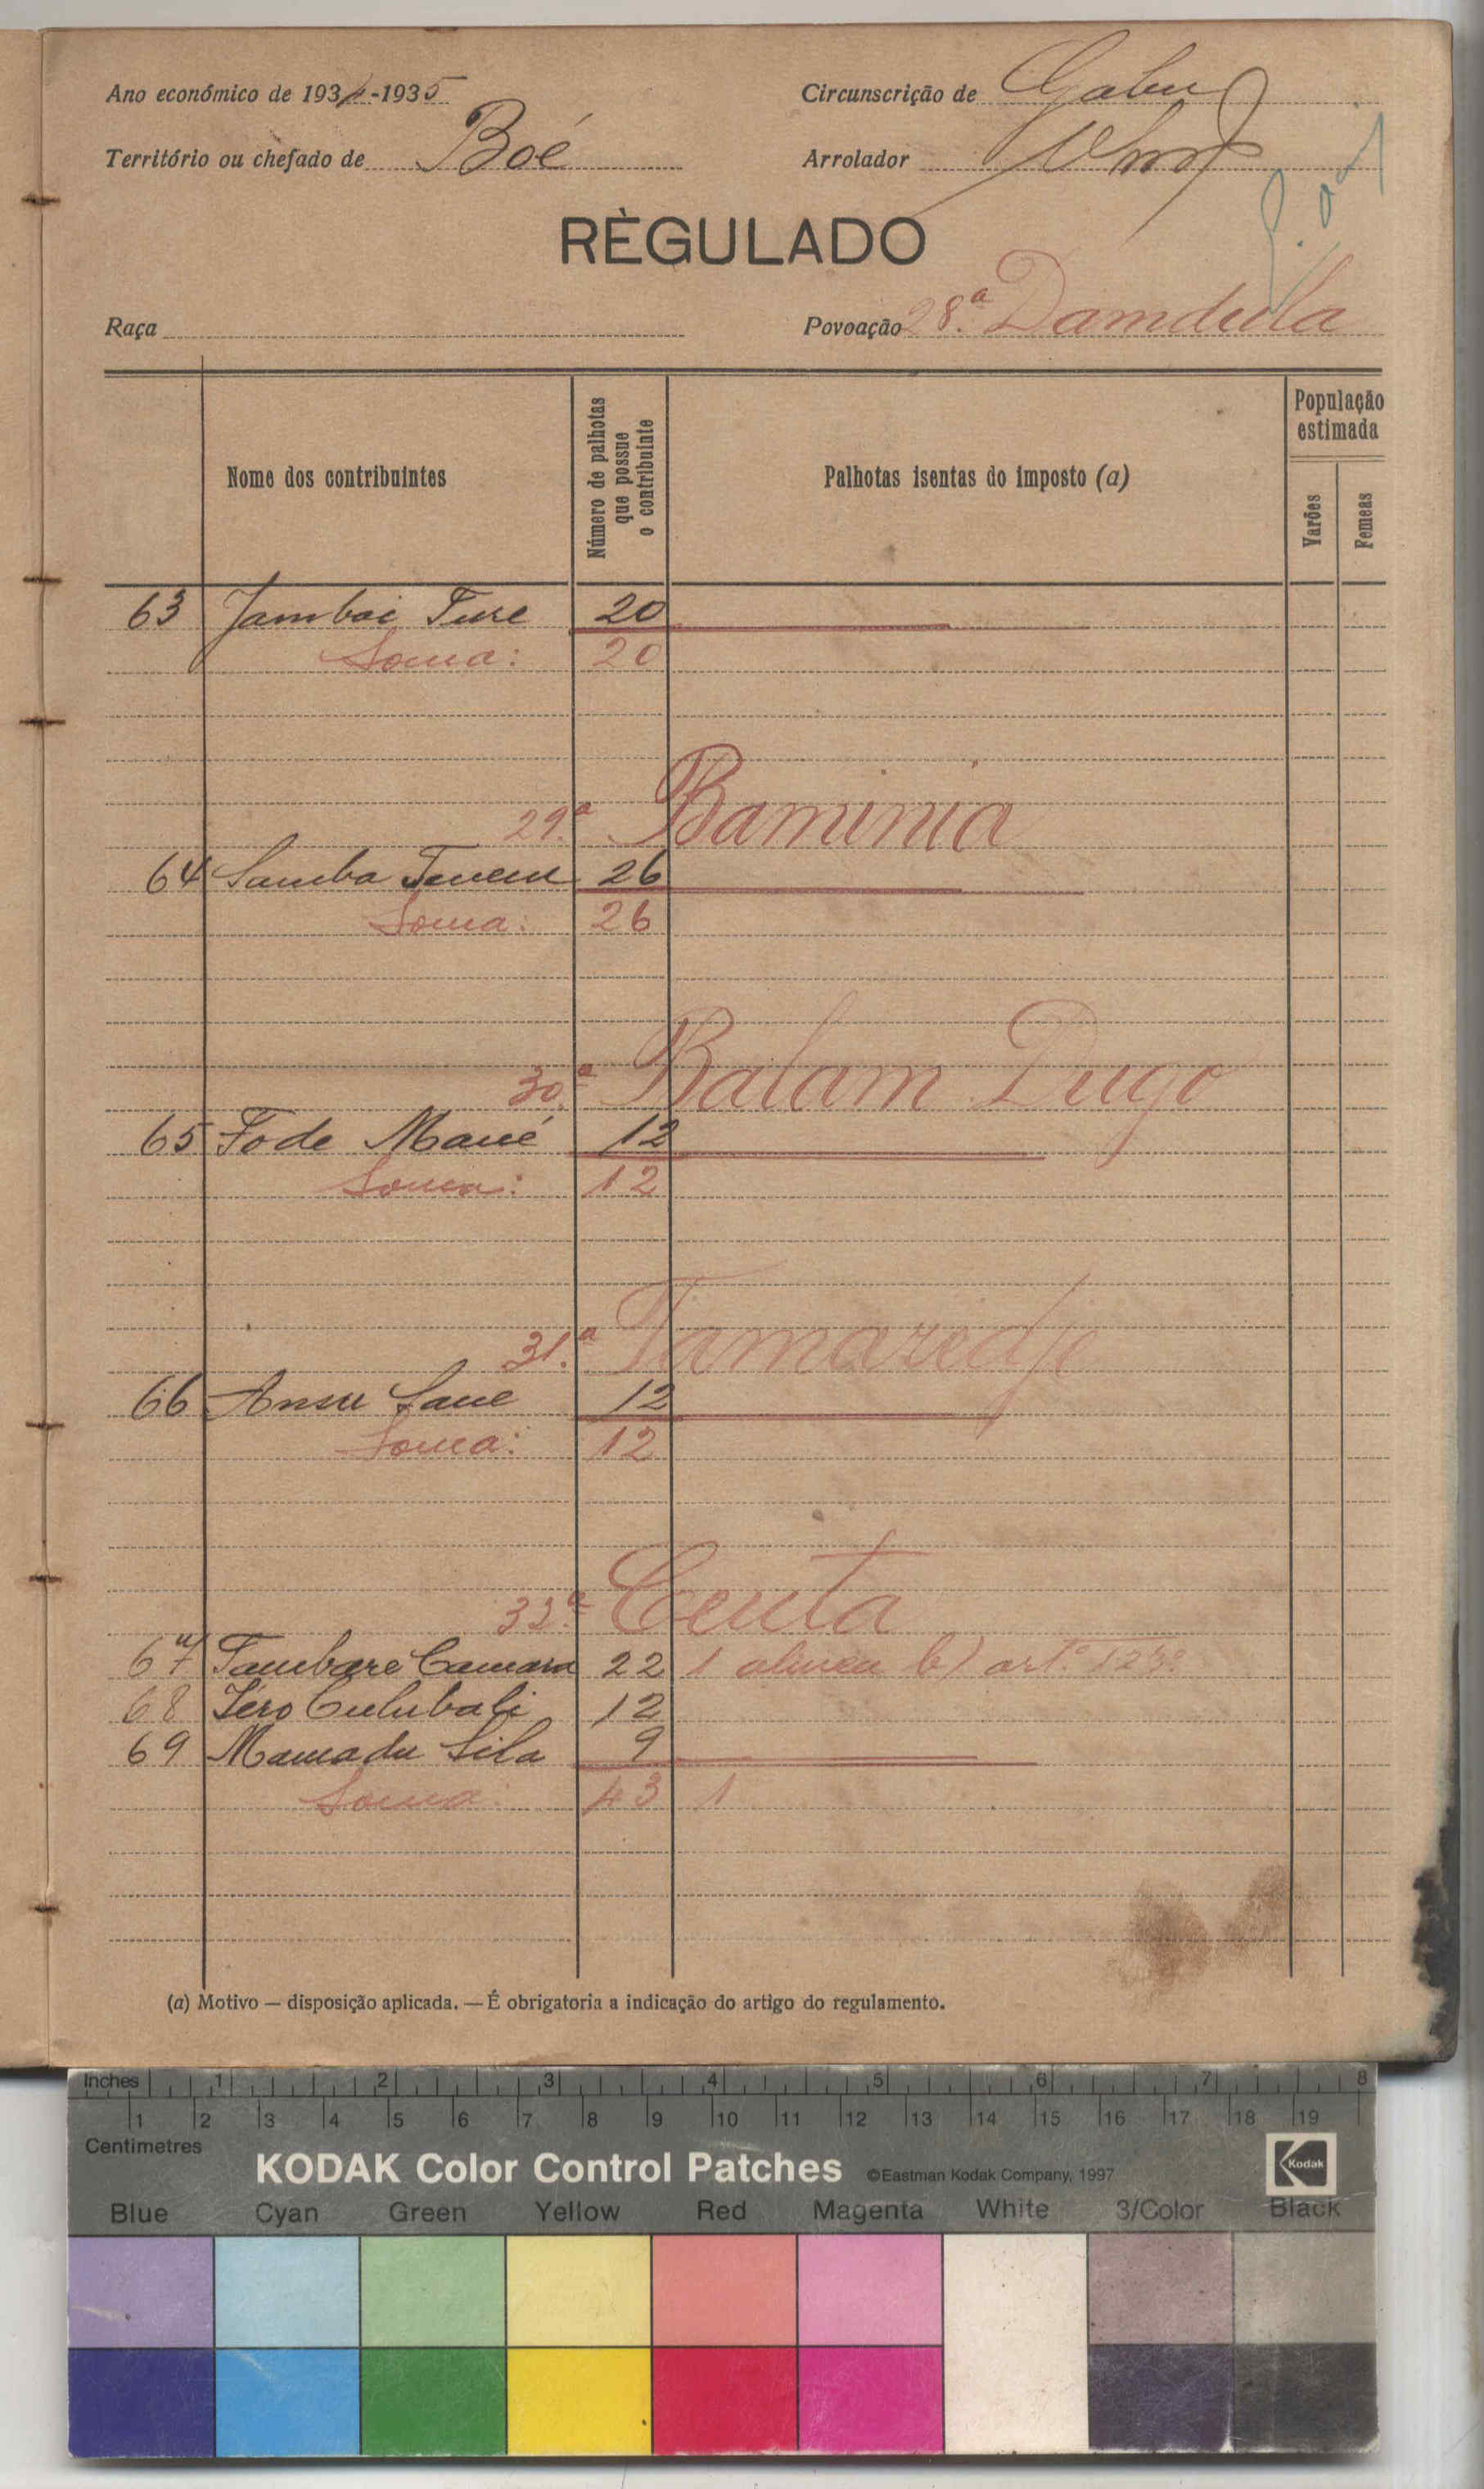 Ano económico de 1934-1935
Circunscrição de Gabu
Território ou chefado de Boé
Arrolador
RÈGULADO
Raça
Povoação 28.ª Damdula
Nome dos contribuintes
Número de palhotas que possue o contribuinte
Palhotas isentas do imposto (a)
População estimada
Varões
Femeas
63 Jambai Ture 20
Soma: 20
29.ª Baminia
64 Samba 26
Soma: 26
30.ª Balam Dugo
65 Fode Mané 12
Soma: 12
31.ª Tamaredje
66 Ansu Sane 12
Soma: 12
32.ª Ceuta
67 Tambare Camara 22 1 alinea b) artº
68 Iero Culubali 12
69 Mamadu Sila 9
Soma: 43 1
(a) Motivo — disposição aplicada. — É obrigatoria a indicação do artigo do regulamento.
Inches 1 2 3 4 5 6 7 8
1 2 3 4 5 6 7 8 9 10 11 12 13 14 15 16 17 18 19
Centimetres
KODAK Color Control Patches ©Eastman Kodak Company, 1997 Kodak
Blue Cyan Green Yellow Red Magenta White 3/Color Black